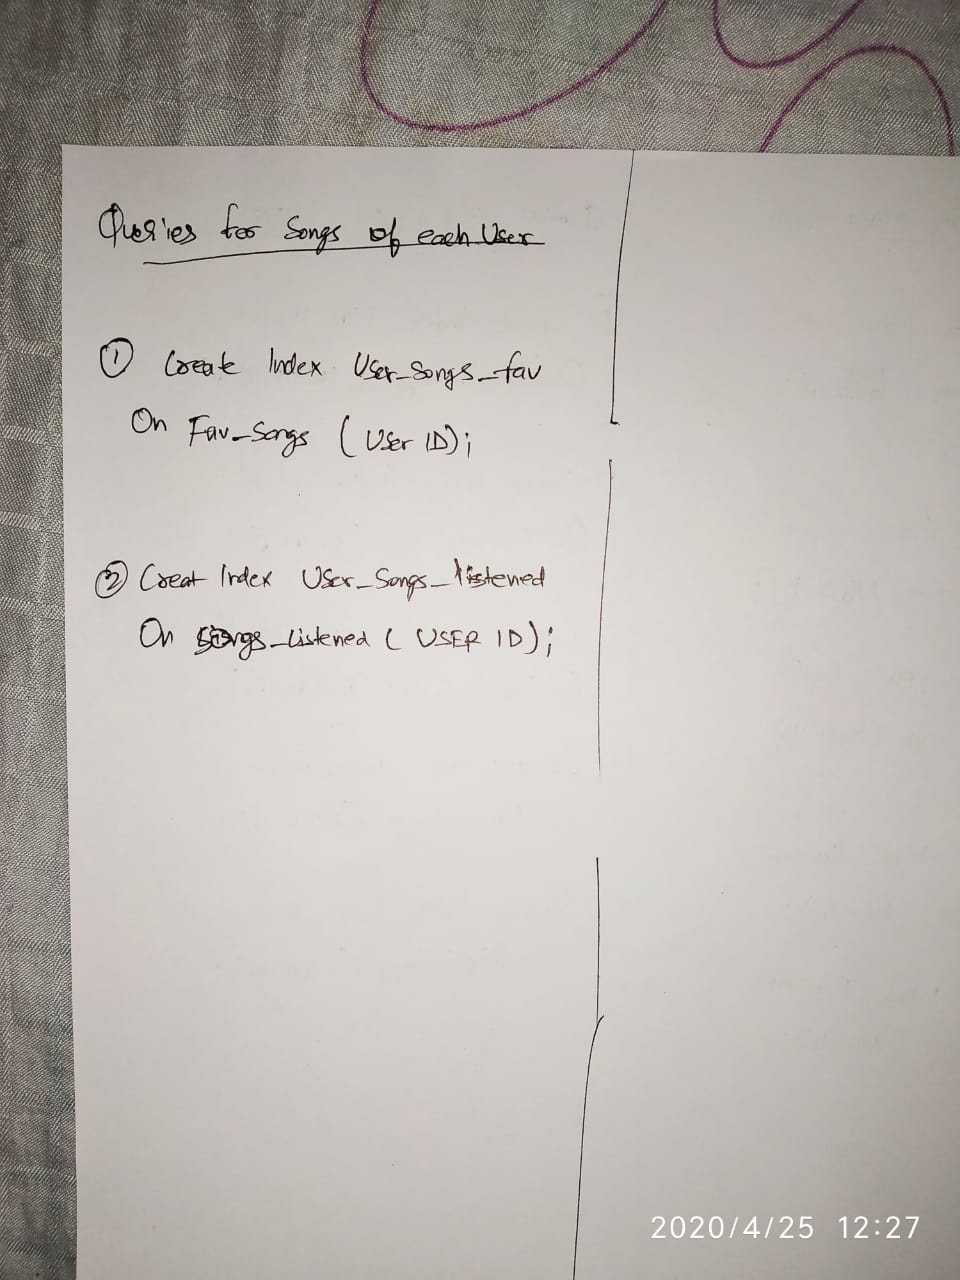 Queries for Songs of each User
① Create Index User_Songs_fav
On Fav_Songs (User ID);
② Creat Index User_Songs_listened
On Songs_Listened (USER ID);
2020/4/25 12:27